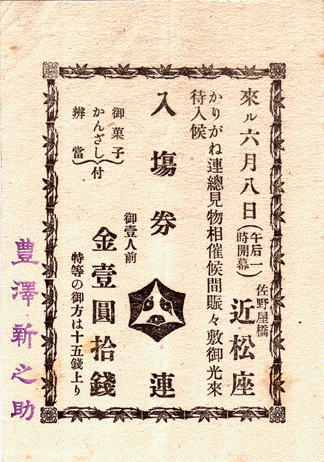 來ル六月八日(午后一時開幕)佐野屋橋 近松座
かりがね連總見物相催候間賑々敷御光來
待入候
入塲券 連
御菓子
かんざし付
辨當
御壹人前
金壹圓拾錢
特等の御方は十五錢上り
豊澤新之助